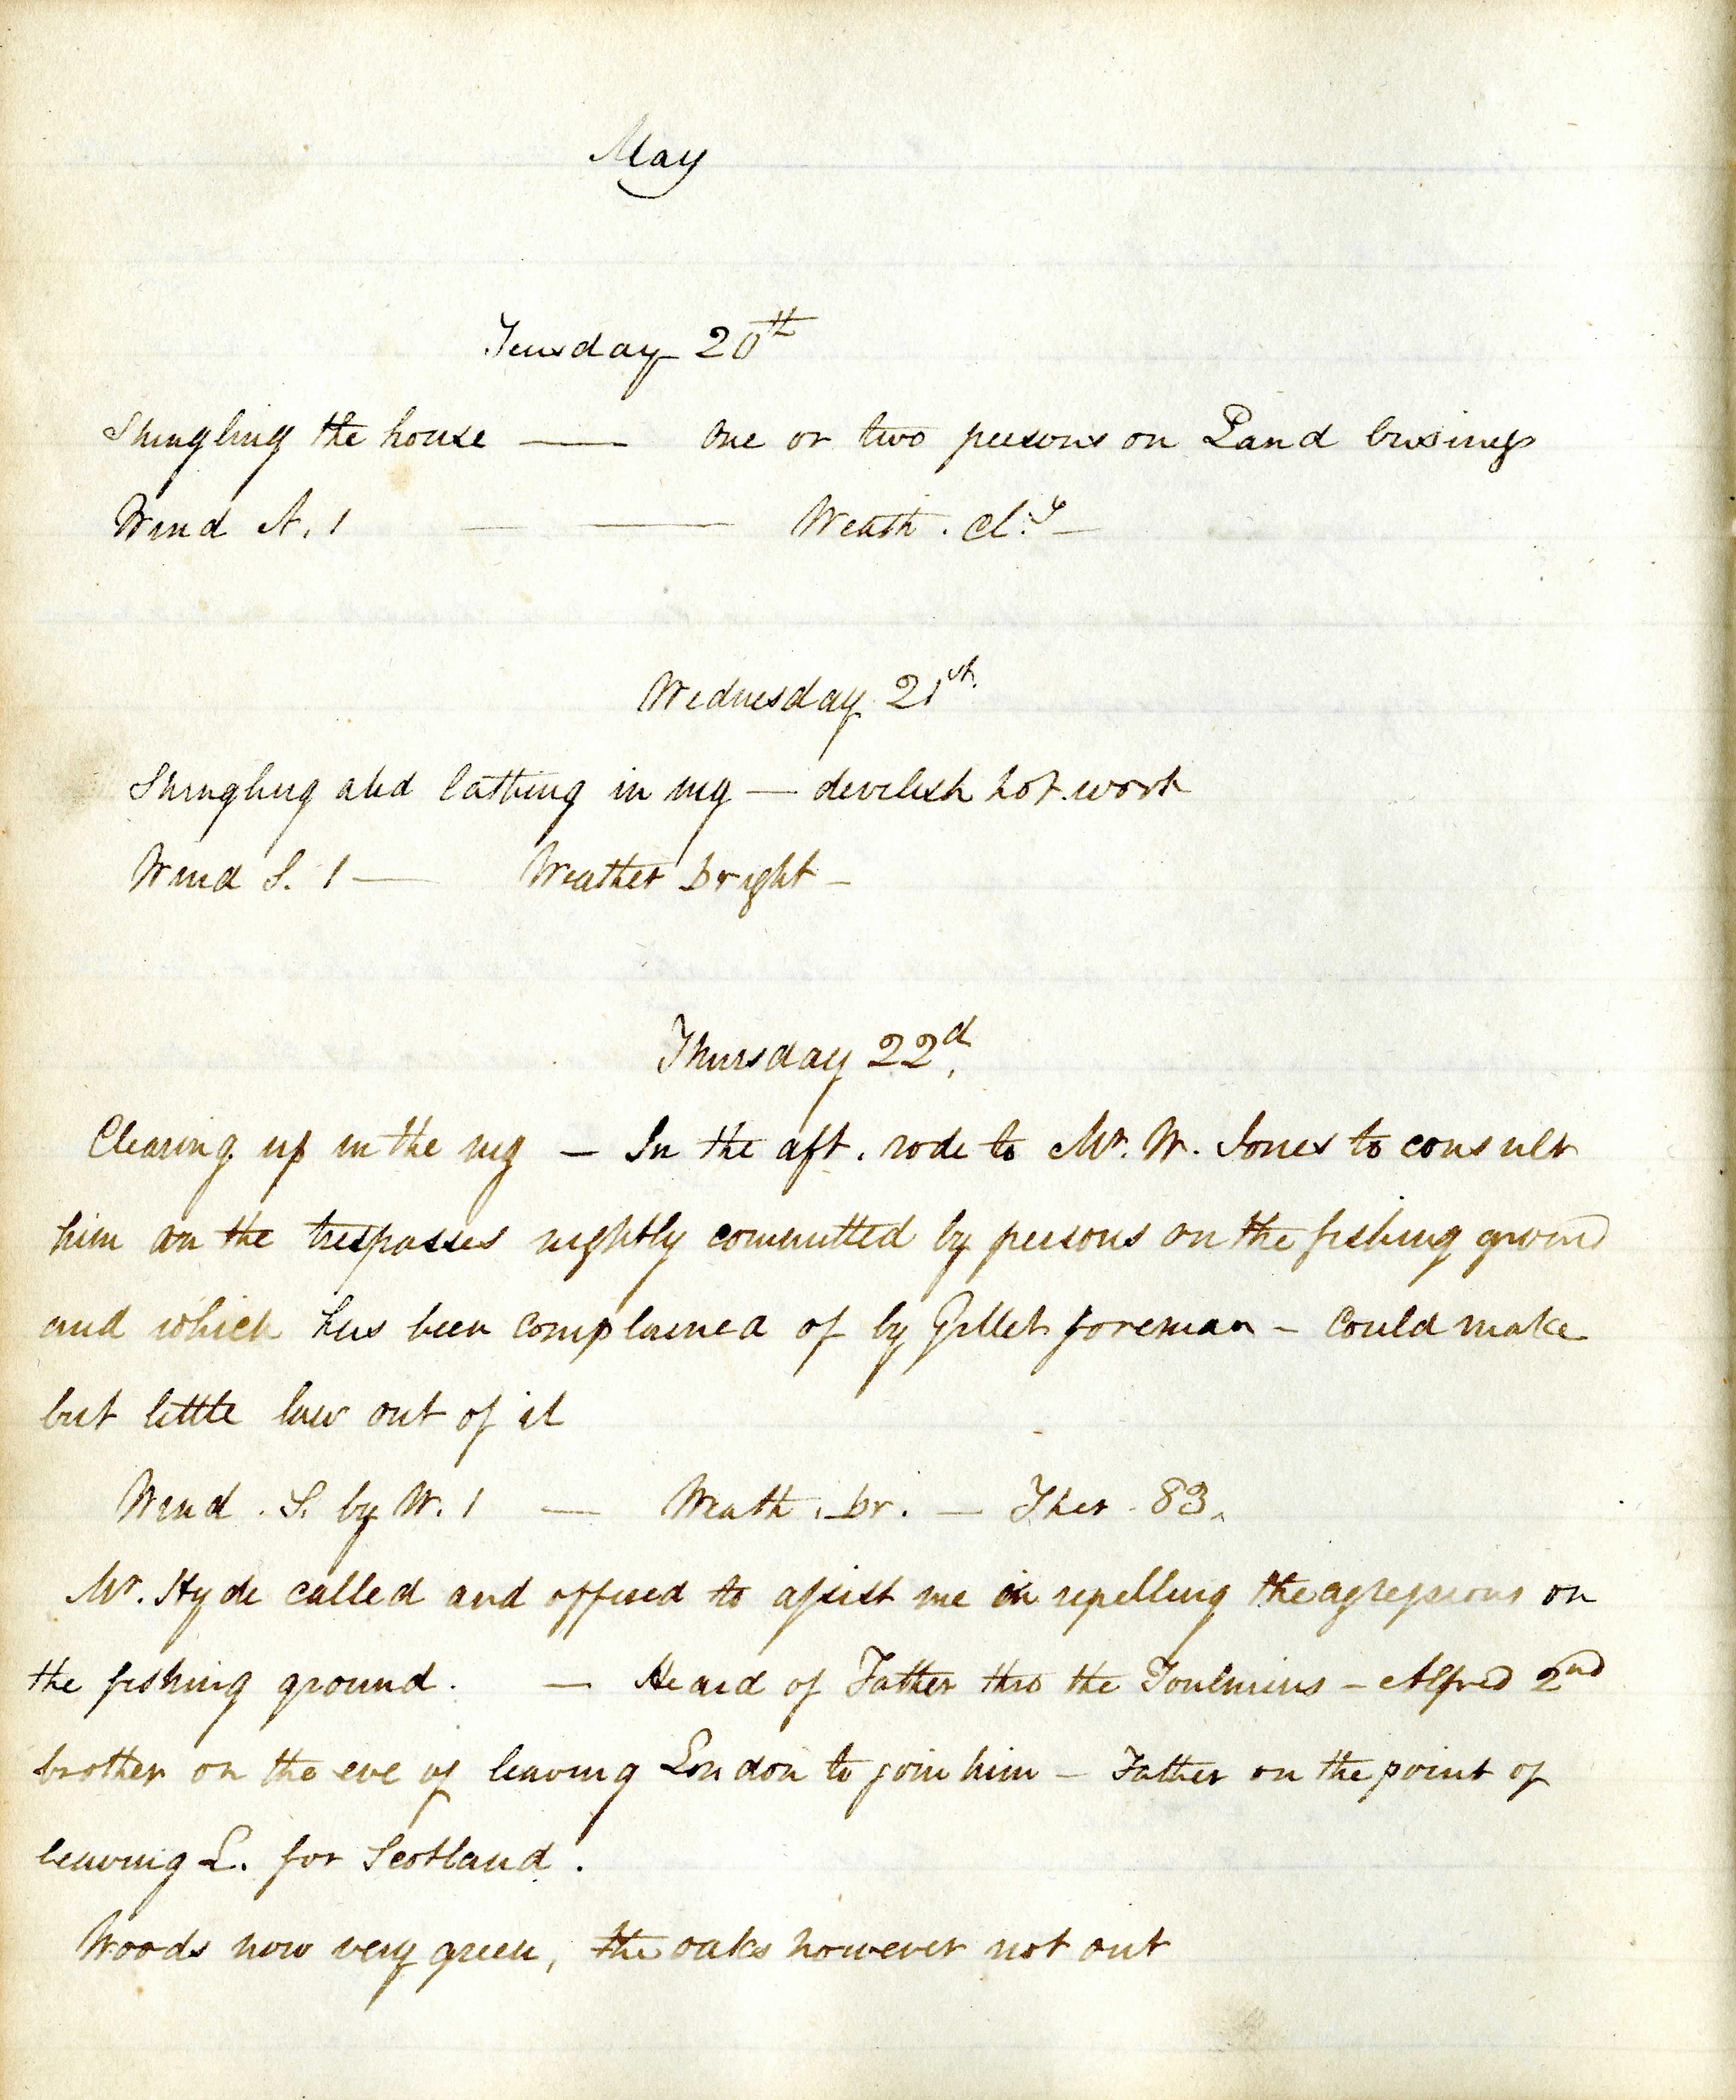 May
Teusday 20th
Shingling the house — one or two persons on Land business
Wind N. 1 — — Weath. Cl:y —
Wednesday 21st.
Shingling and lathing in mg — devilish hot work
Wind S. 1 — Weather bright —
Thursday 22d.
Clearing up in the mg — In the aft. rode to Mr. W. Jones to consult
him on the trespasses nightly committed by persons on the fishing ground
and which has been complained of by Gillet foreman — could make
but little law out of it
Wind. S. by W. 1 — Weath. br. — Ther. 83.
Mr. Hyde called and offered to assist me in repelling the agressions on
the fishing ground. — Heard of Father thro the Toulmins — Alfred 2nd
brother on the eve of leaving London to join him — Father on the point of
leaving L. for Scotland.
Woods now very green, the oaks however not out